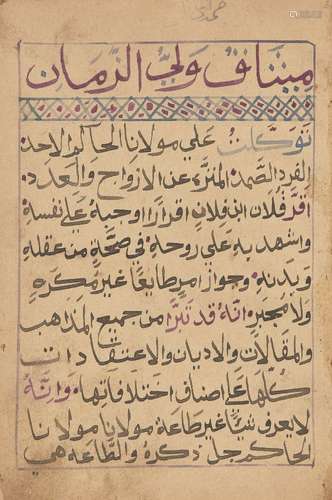 ميثاق ولي الزمان
توكلت على مولانا الحاكم الاحد
الفرد الصمد المنزه عن الازواج والعدد
اقر فلان ابن فلان اقرارًا اوجبه على نفسه
واشهد به على روحه في صحة من عقله
وبدنه وجواز امر طايعًا غير مكره
ولا مجبر انه قد تبرا من جميع المذاهب
والمقالات والاديان والاعتقادات
كلها على اصناف اختلافاتها وانه
لا يعرف شيا غير طاعة مولانا مولانا
الحاكم جل ذكره والطاعة هي